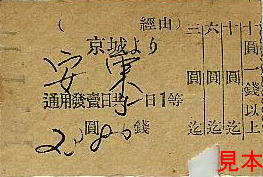 ( 經由)
京城より
安東
通用發賣日共一日1等
圓 錢
三圓迄
六圓迄
十圓迄
十圓一錢以上
見本